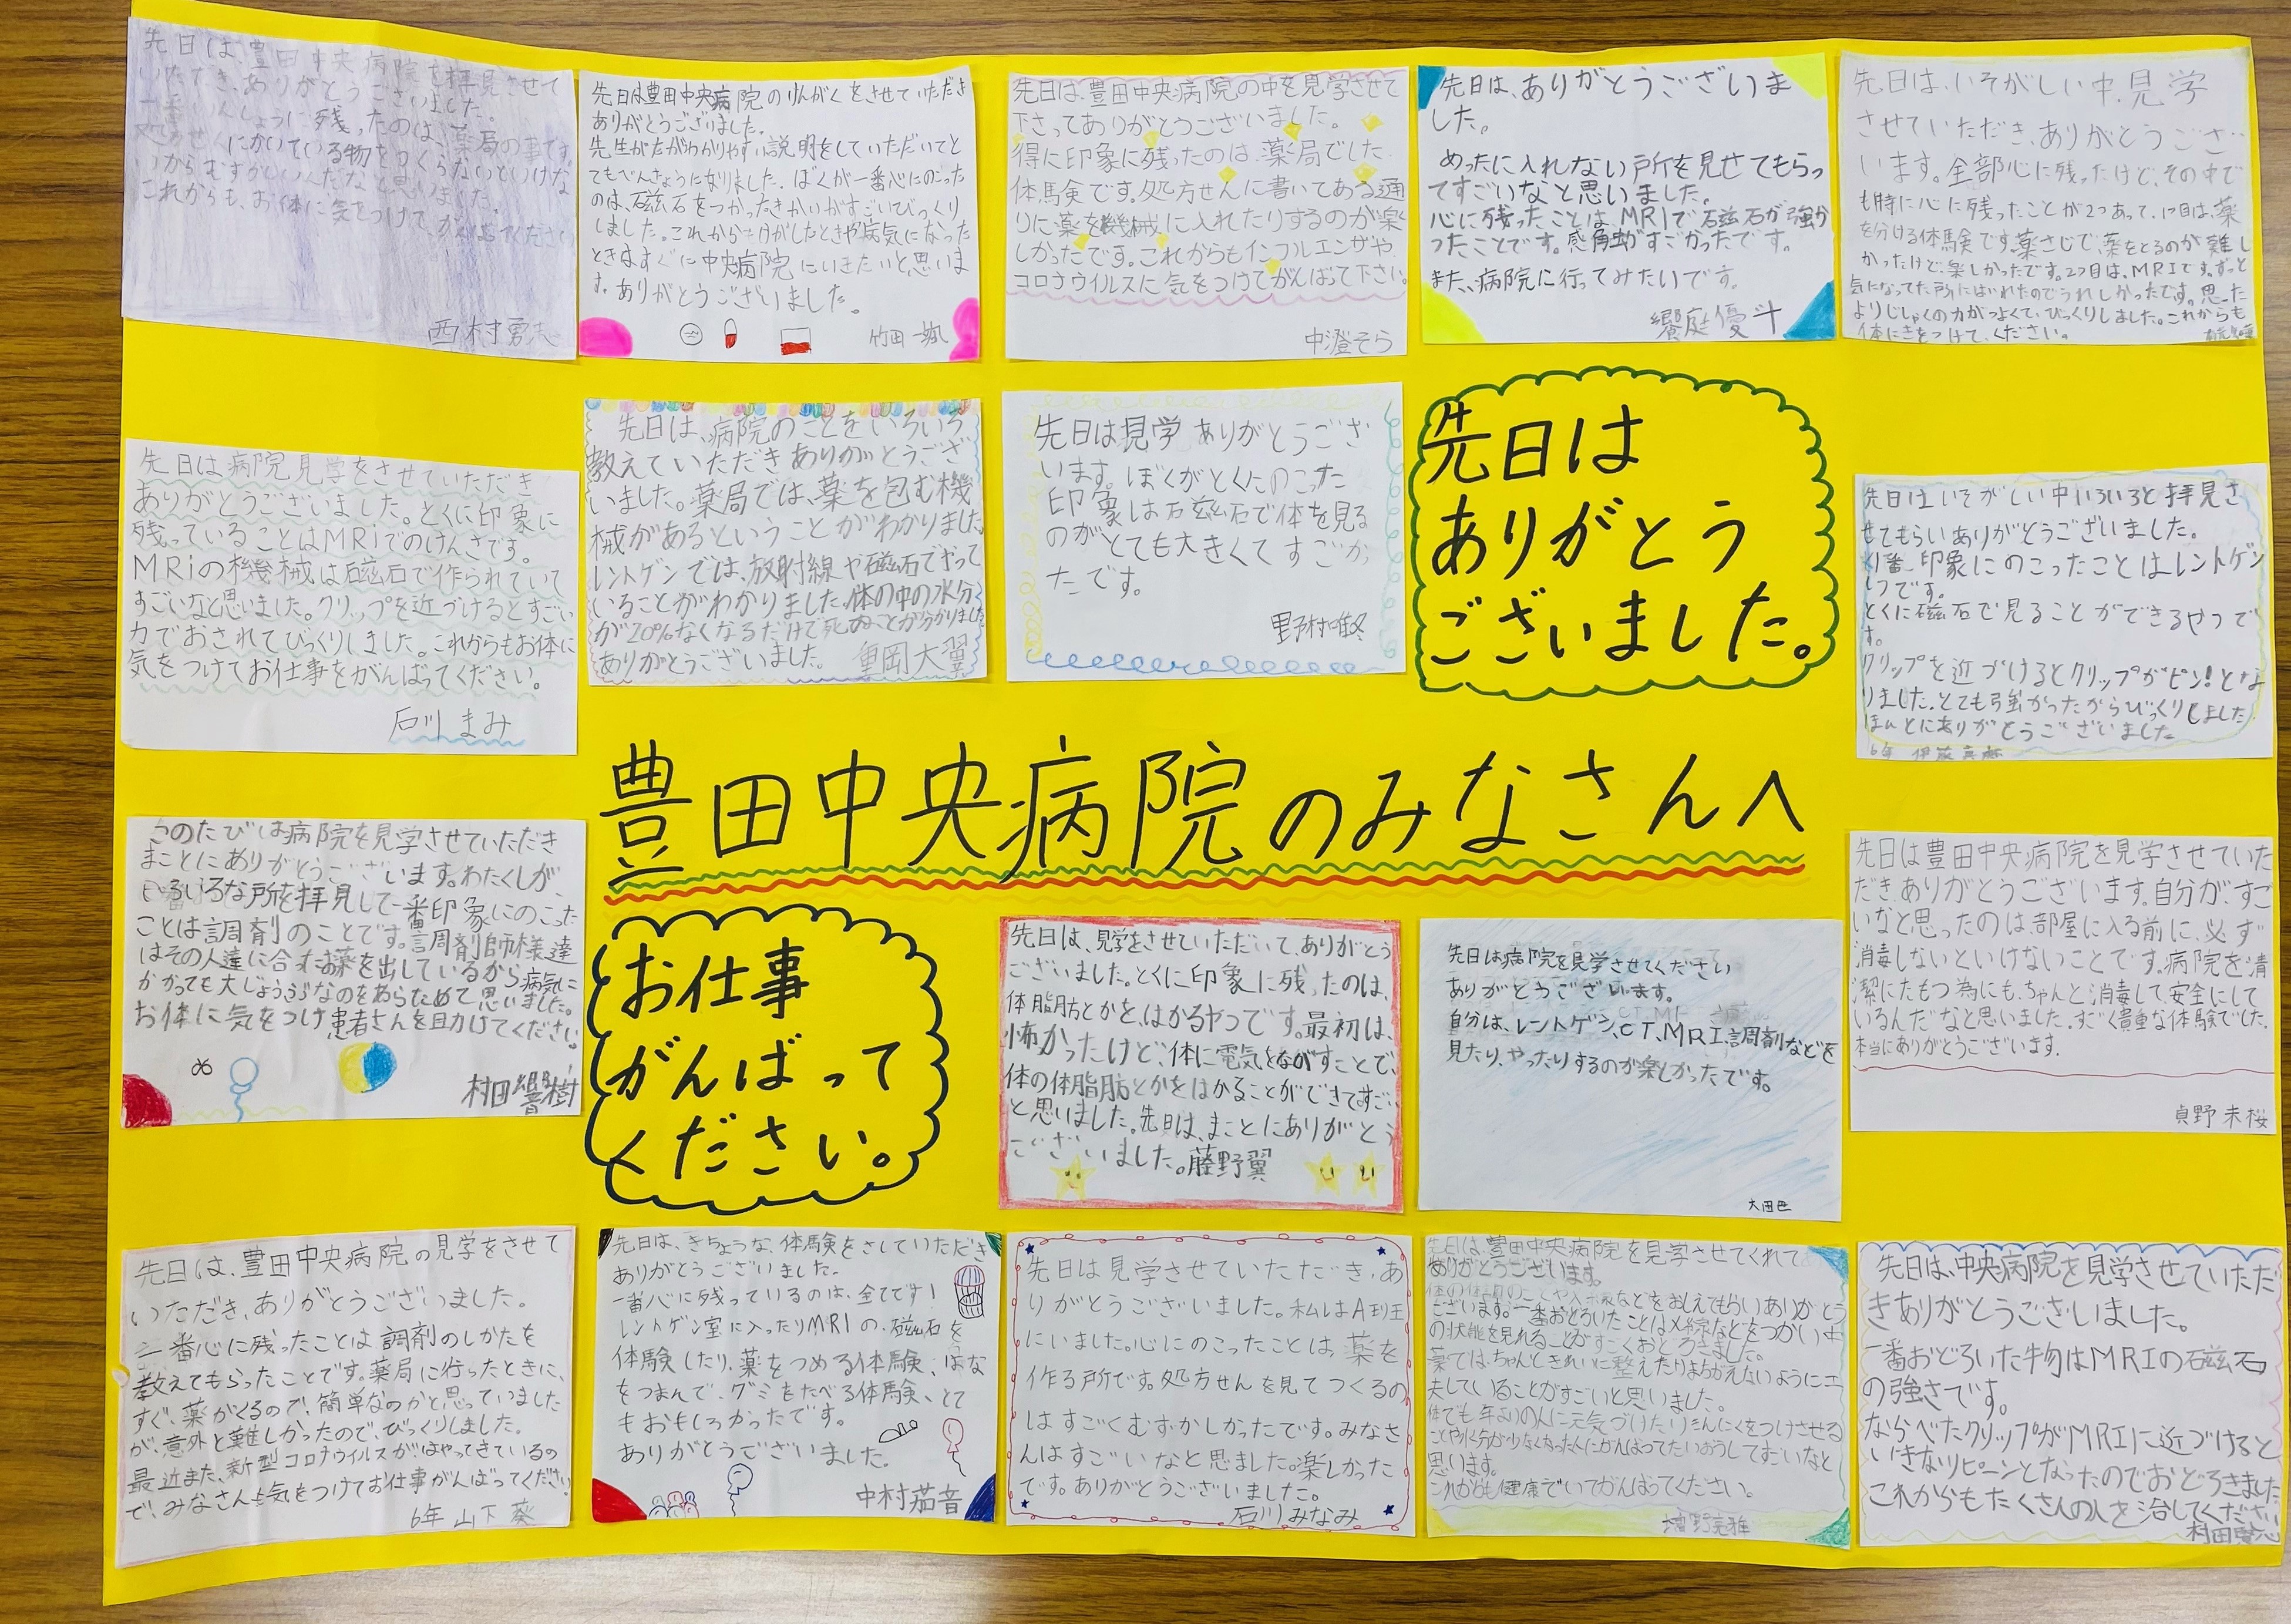 先日は、豊田中央病院を拝見させて
いただき、ありがとうございました。
一番いんしょうに残ったのは、薬局の事です。
処方せんにかいている物をつくらないといけな
いからむずかしいんだなと思いました。
これからも、お体に気をつけて、がんばってください
西村勇志
先日は豊田中央病院のけんがくをさせていただき
ありがとうございました。
先生がたがわかりやすい説明をしていただいてと
てもべんきょうになりました。ぼくが一番心にのこった
のは、磁石をつかったきかいがすごいびっくり
しました。これからけがしたときや病気になった
ときはすぐに中央病院にいきたいと思いま
す。ありがとうございました。
竹田一颯
先日は、豊田中央病院の中を見学させて
下さってありがとうございました。
得に印象に残ったのは、薬局でした
体馬験です。処方せんに書いてある通
りに薬を機械に入れたりするのが楽
しかったです。これからもインフルエンザや
コロナウイルスに気をつけてがんばって下さい。
中澄そら
先日は、ありがとうございま
した。
めったに入れない所を見せてもらっ
てすごいなと思いました。
心に残ったことは、MRIで石磁石が強か
ったことです。感触がすごかったです。
また、病院に行ってみたいです。
饗庭優斗
先日は、いそがしい中、見学
させていただき、ありがとうござ
います。全部心に残ったけど、その中で
も特に心に残ったことが2つあって、1つ目は、薬
を分ける体験です。薬さじで、薬をとるのが難し
かったけど、楽しかったです。2つ目は、MRIです。ずっと
気になってた所にはいれたのでうれしかったです。思った
よりじしゃくの力がつよくて、びっくりしました。これからも
体にきをつけて、ください。
先日は病院見学をさせていただき
ありがとうございました。とくに印象に
残っていることはMRiでのけんさです。
MRiの機械は石磁石で作られていて
すごいなと思いました。クリップを近づけるとすごい
力でおされてびっくりしました。これからもお体に
気をつけてお仕事をがんばってください。
石川まみ
先日は、病院のことをいろいろ
教えていただきありがとうござ
いました。薬局では、薬を包む機
械があるということがわかりました
レントゲンでは、放射線や磁石でやって
いることがわかりました。体の中の水分
が20%なくなるだけで死ぬことが分かりました
ありがとうございました。 重岡大翼
先日は見学ありがとうござ
います。ぼくがとくにのこった
印象は石磁石で体を見る
のがとても大きくてすごかっ
たです。
野村唯冬
先日は
ありがとう
ございました。
先日はいそがしい中いろいろと拝見さ
せてもらいありがとうございました。
1番印象にのこったことはレントゲン
とくに磁石で見ることができるやつで
す。
クリップを近づけるとクリップがピン!とな
りました。とても強かったからびっくりしました
ほんとにありがとうございました
6年
豊田中央病院のみなさんへ
このたびは病院を見学させていただき
まことにありがとうございます。わたくしが、
いろいろな所を拝見して一番印象にのこった
ことは調剤のことです。調剤師様達
はその人達に合ったお薬を出しているから病気に
かかっても大じょうぶなのをあらためて思いました。
お体に気をつけ患者さんを助けてください。
村田響樹
お仕事
がんばって
ください。
先日は、見学をさせていただいて、ありがとう
ございました。とくに印象に残ったのは、
体脂肪とかを、はかるやつです。最初は、
怖かったけど、体に電気をながすことで、
体の体脂肪とかをはかることができてすごい
と思いました。先日は、まことにありがとう
ございました。藤野翼
先日は病院を見学させてください
ありがとうございます。
自分は、レントゲン、CT、MRI、調剤などを
見たり、やったりするのが楽しかったです。
先日は豊田中央病院を見学させていた
だき、ありがとうございます。自分が、すご
いなと思ったのは、部屋に入る前に、必ず
消毒しないといけないことです。病院を清
潔にたもつ為にも、ちゃんと消毒して、安全にして
いるんだなと思いました。すごく貴重な体験でした。
本当にありがとうございます。
貞野未桜
先日は、豊田中央病院の見学をさせて
いただき、ありがとうございました。
一番心に残ったことは、調剤のしかたを
教えてもらったことです。薬局に行ったときに、
すぐ、薬がくるので、簡単なのかと思っていました
が、意外と難しかったので、びっくりしました。
最近また、新型コロナウイルスが、はやってきているの
で、みなさんも気をつけてお仕事がんばってください
6年 山下 葵
先日は、きちょうな、体験をさしていただき
ありがとうございました。
一番心に残っているのは、全てです!
レントゲン室に入ったりMRIの、磁石を
体験したり、薬をつめる体験、はな
をつまんで、グミをたべる体験、とて
もおもしろかったです。
ありがとうございました。
中村茄音
先日は見学させていただき、あ
りがとうございました。私はA班
にいました。心にのこったことは、薬を
作る所です。処方せんを見てつくるの
はすごくむずかしかったです。みなさ
んはすごいなと思ました。楽しかった
です。ありがとうございました。
石川みなみ
先日は、豊田中央病院を見学させてくれて
ありがとうございます。
ございます。一番おどろいたことはX線などをつかい中
の状態を見れることがすごくおどろきました。
薬では、ちゃんときれいに整えたりまちがえないように工
夫していることがすごいと思いました。
思います。
これからも健康でいてがんばってください。
先日は、中央病院を見学させていただ
きありがとうございました。
一番おどろいた物はMRIの石磁石
の強さです。
ならべたクリップがMRIに近づけると
いきなりピーンとなったのでおどろきました
これからもたくさんの人を治してください